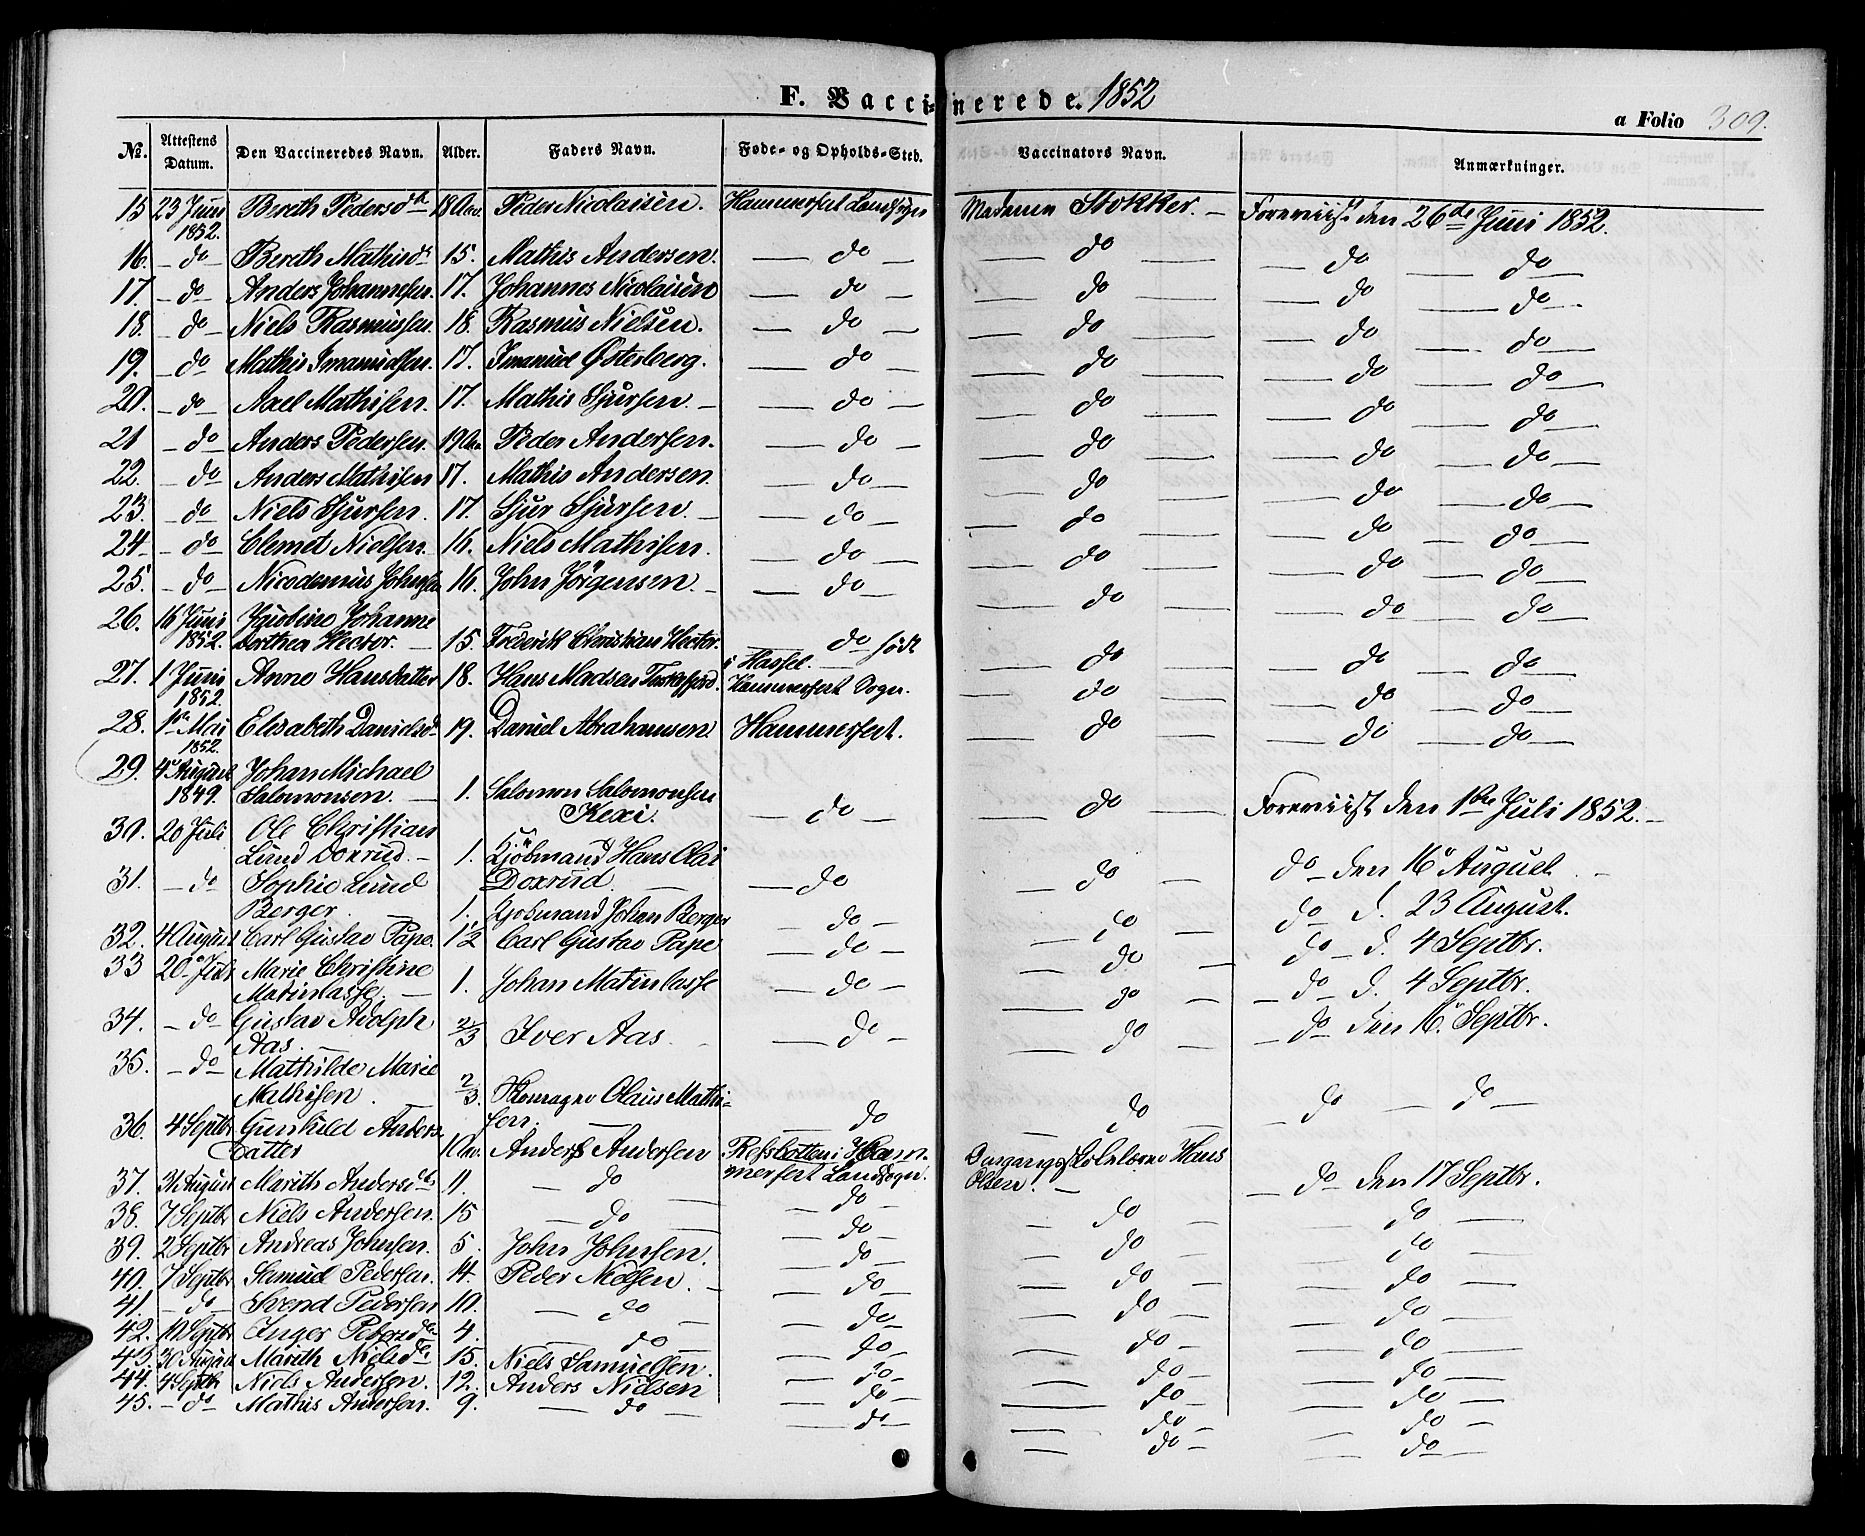 F. Vaccinerede. 1852
a Folio 309.
No. Attestens Datum. Den Vaccineredes Navn. Alder. Faders Navn. Føde- og Opholds-Sted. Vaccinators Navn. Anmærkninger.
15 23 Juni 1852. Bereth Pedersdtr 18 Aar. Peder Nicolaisen. Hammerfest Landsogn Madame Stokker. – Foreviist den 26de Juni 1852.
16. – do – Bereth Mathisdr 15. Mathis Andersen. – do – – do – – do – do –
17. – do – Anders Johannesen. 17. Johannes Nicolaisen – do – – do – – do – do –
18. – do – Niels Rasmussen. 18. Rasmus Nielsen. – do – – do – – do – do –
19. – do – Mathis Imanuelsen. 17. Imanuel Østerberg. – do – – do – – do – do –
20. – do – Axel Mathisen. 17. Mathis Sjursen. – – do – – do – – do – do –
21 – do – Anders Pedersen. 19 Aar Peder Andersen. – do – – do – – do – do –
22. – do Anders Mathisen 17. Mathis Andersen – do – – do – – do – do –
23. – do – Niels Sjursen. 17. Sjur Sjursen. – – do – – do – – do – do –
24 – do – Clemet Nielsen. 16. Niels Mathisen. – do – – do – – do – do –
25. – do – Nicodemus Johnsen 16. John Jörgensen. – – do – – do – – do – do –
26. 16 Juni Jacobine Johanne
1852. Dorthea Hector. – 15. Frederik Christian Hector. – do – født i Hassel. – do – – do – do –
27. 1 Juni 1852. Anne Hansdatter 18. Hans Madsen Hammerfest Sogn. – do – – do – do –
28. 1ste Mai 1852. Elisabeth Danielsd. 19. Daniel Abrahamsen. Hammerfest. – do – – do – do –
29. 4 August Johan Michael
1849. Salomonsen. – 1. Salomon Salomonsen Kexi. – do – – do – Foreviist den 1ste Juli 1852. –
30. 20 Juli Ole Christian
Lund Doxrud. – 1. Kjöbmand Hans Olai Doxrud. – – do – do – do – den 16 August. –
31. – do Sophie Lund
Berger – 1. Kjöbmand Johan Berger – do – – do – do – d. 23 August.
32. 4 August Carl Gustav Pape. 1½ Carl Gustav Pape – do – – do – do – d. 4 Septbr.
33 20 Juli Marie Christine
Matinlasse. – 1. Johan Matinlasse – do – – do – – do – d. 4 Septbr.
34. – do – Gustav Adolph
Aas. – 2/3 Iver Aas. – do – – do – – do – den 16. Septbr.
35. – do – Mathilde Marie
Mathisen. 2/3. Skomager Olaus Mathisen. – do – do – do – do –
36. 4 Septbr Gunhild Andersdatter 10 Aar. Anders Andersen Refsbotten i Hammerfest Landsogn. Omgangsskolelærer Hans Olsen. – – do – den 17 Septbr.
37. 31 August Marith Andersdtr 11. – do – do – – do – – do –
38. 7 Septbr Niels Andersen. 15 – do – – do – – do – – do –
39. 2 Septbr Andreas Johnsen. 5. John Johnsen. – do – – do – – do –
40. 7 Septbr Samuel Pedersen. 14. Peder Nielsen. – – do – – do – – do –
41. – do – Svend Pedersen 10. – do – – do – – do – – do –
42. 11 Septbr Inger Pedersdtr 4. – do – – do – – do – – do –
43. 30 August Marith Nielsdtr 15. Niels Samuelsen. – do – – do – – do –
44. 4 Septbr Niels Andersen. 12. Anders Nielsen – do – – do – – do –
45. – do – Mathis Andersen. 9. – do – – do – – do – – do –